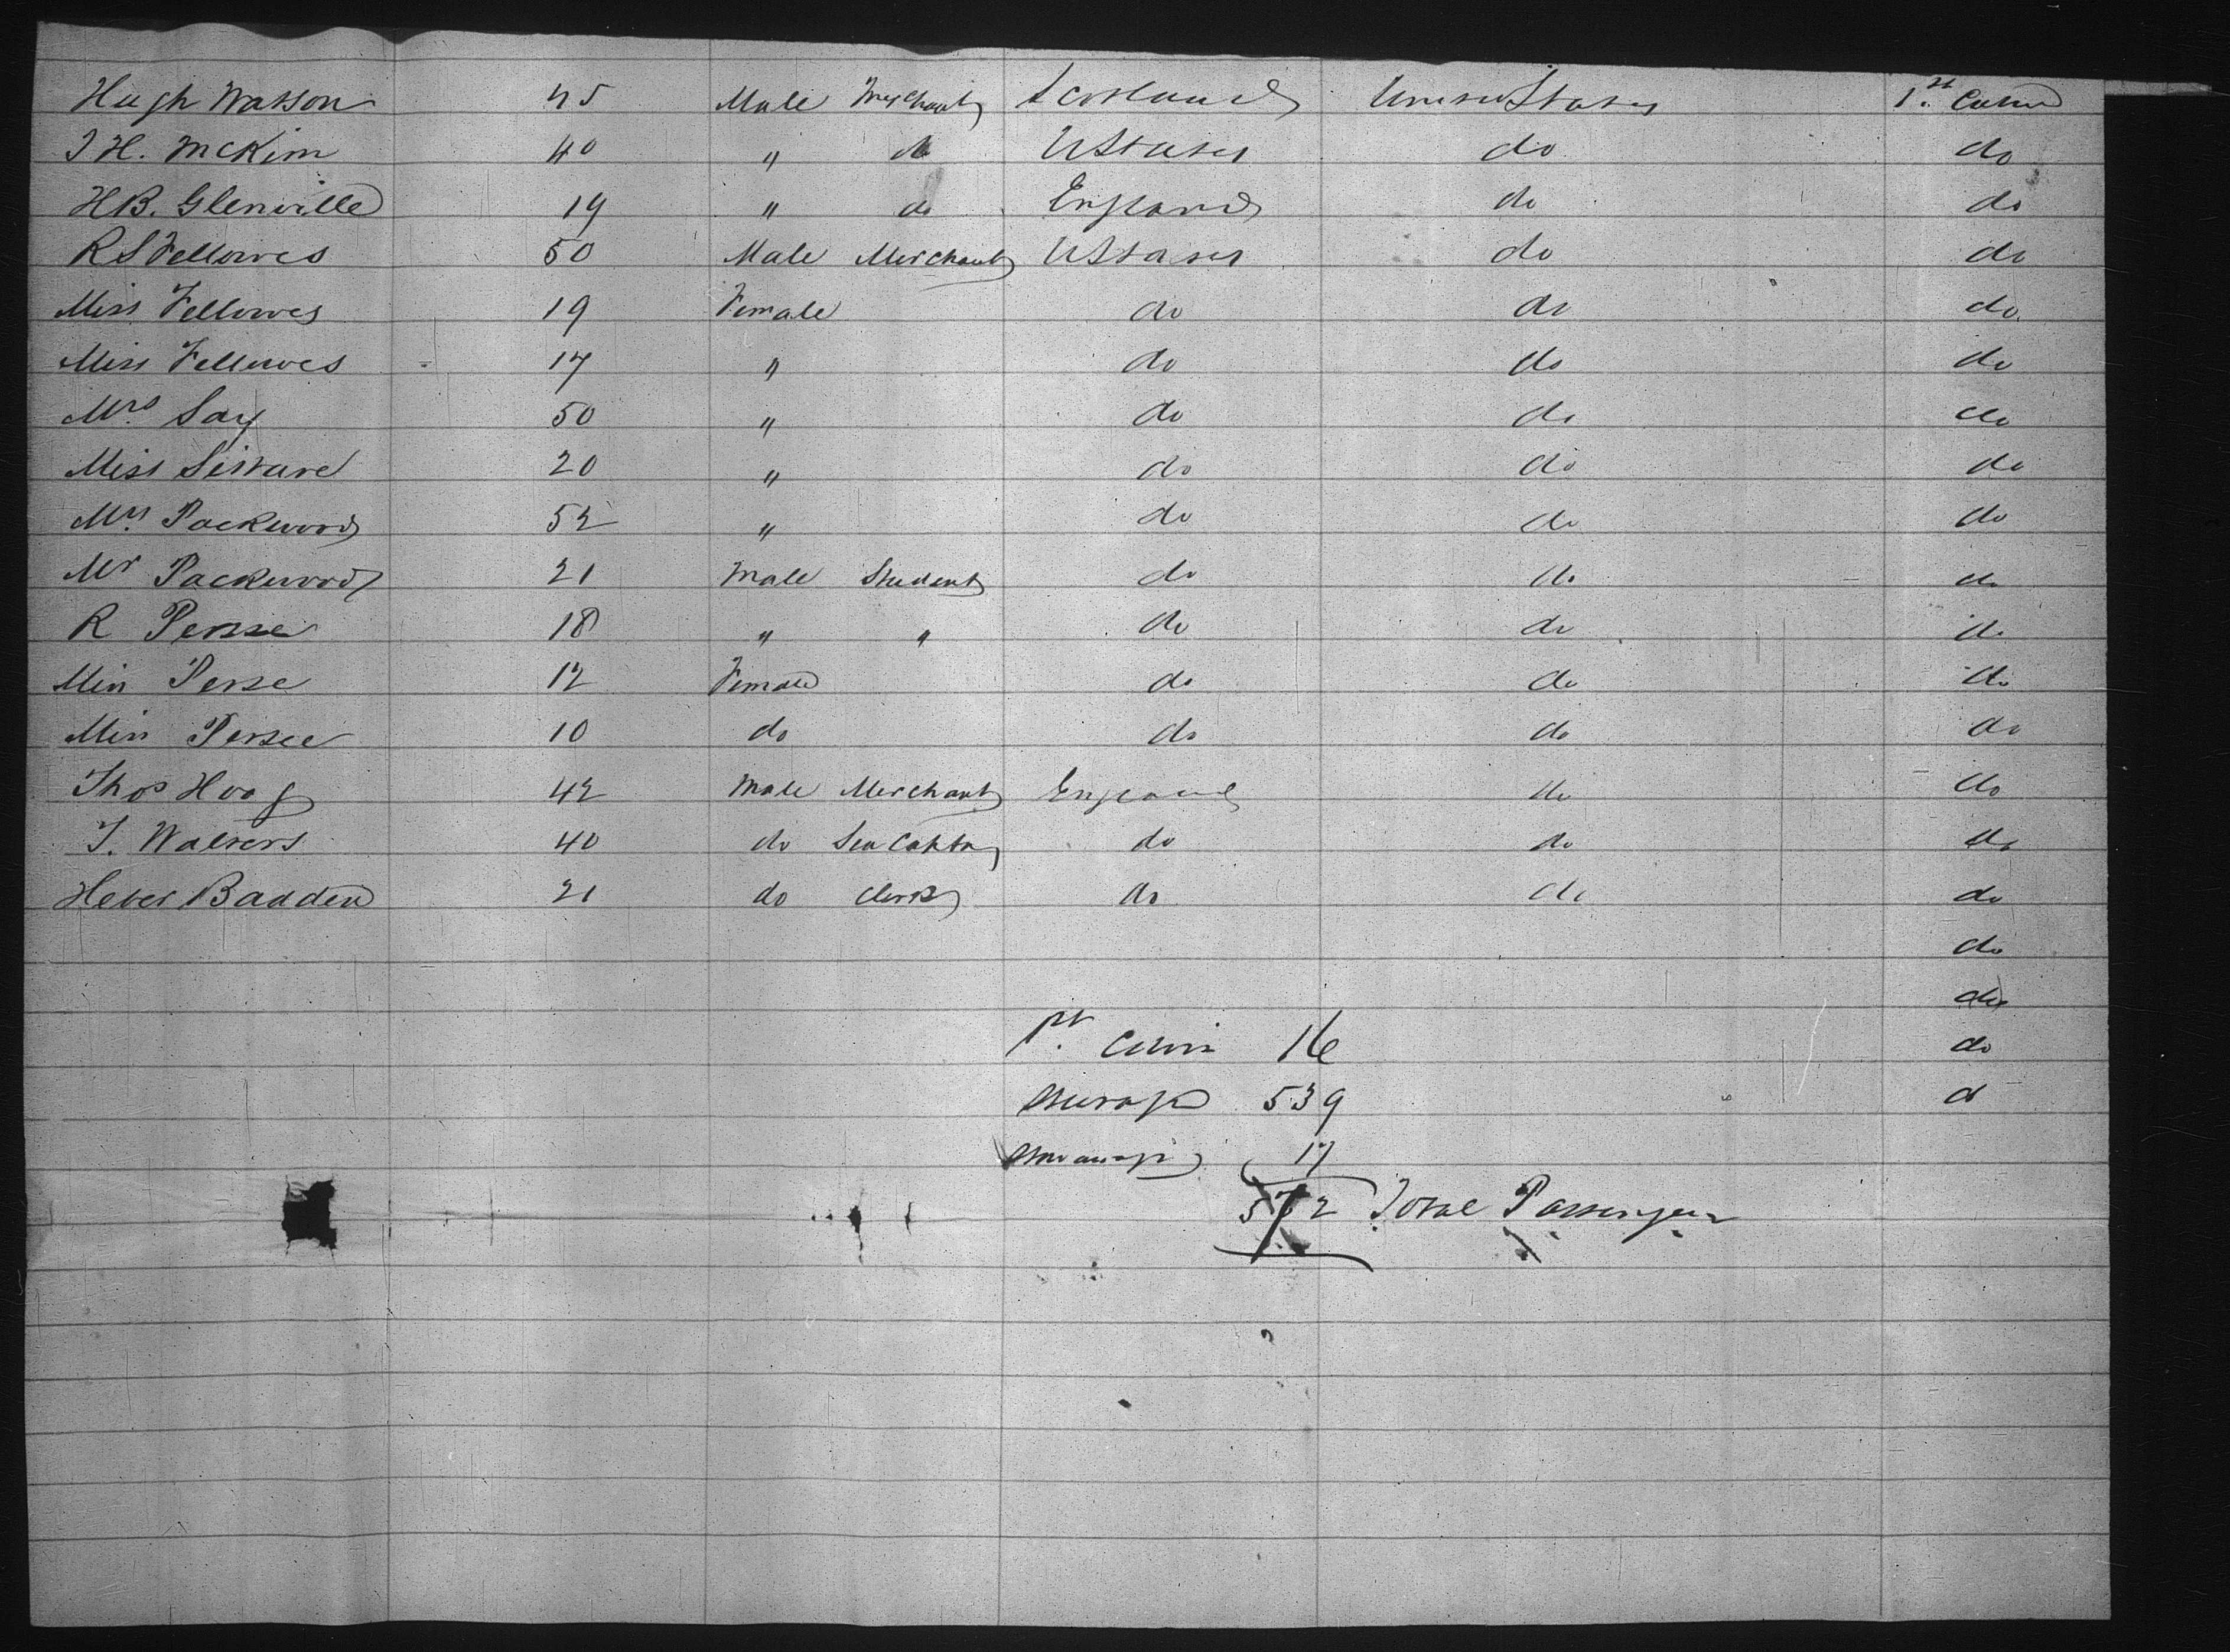 Hugh Watson 45 Male Merchant Scotland United States 1st Cabin
J H. McKim 40 " do U States do do
H B. Glenville 19 " do England do do
R S Fellowes 50 Male Merchant U States do do
Miss Fellowes 19 Female do do do
Miss Fellowes 17 " do do do
Mrs Say 50 " do do do
Miss 20 " do do do
Mrs. Packwood 52 " do do do
Mr Packwood 21 Male Student do do do
R Persse 18 " " do do do
Miss Perse 12 Female do do do
Miss Persee 10 do do do do
Thos Hoag 42 Male Merchant England do do
T. Walters 40 do Sea Captn do do do
Heber Badden 21 do Clerk do do do
do
do
1st. Cabin 16 do
Steerage 539 d
17
572 Total Passengers